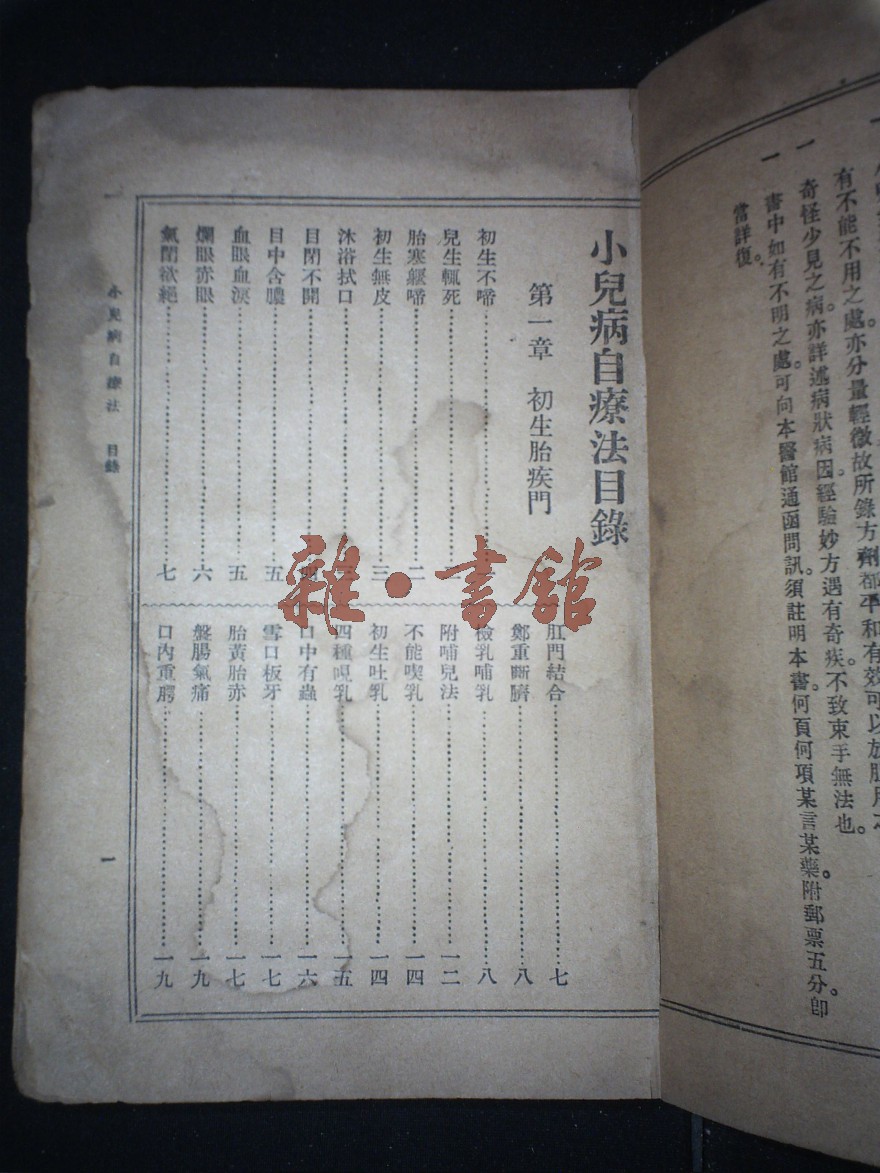 有不能不用之處亦分量輕微故所錄方劑都平和有效可以放膽用之
奇怪少見之病亦詳述病狀病因經驗妙方遇有奇疾。不致束手無法也。
一 書中如有不明之處。可向本醫館通函問訊。須註明本書。何頁何項某言某藥。附郵票五分。卽
當詳復。
小兒病自療法目錄
第一章 初生胎疾門
初生不啼
兒生輒死
胎寒經啼 二
初生無皮 三
沐浴拭口
目閉不開 四
目中含膿 五
血眼血淚 五
爛眼赤眼 六
氣閉欲絕 七
肛門結合 七
鄭重斷臍 八
檢乳哺乳 八
附哺兒法 一二
不能喫乳 一四
初生吐乳 一四
四種呪乳 一五
口中有蟲 一六
雪口板牙 一七
胎黃胎赤 一七
盤腸氣痛 一九
口內重腭 一九
小兒病自療法 目錄
一
雜·書館